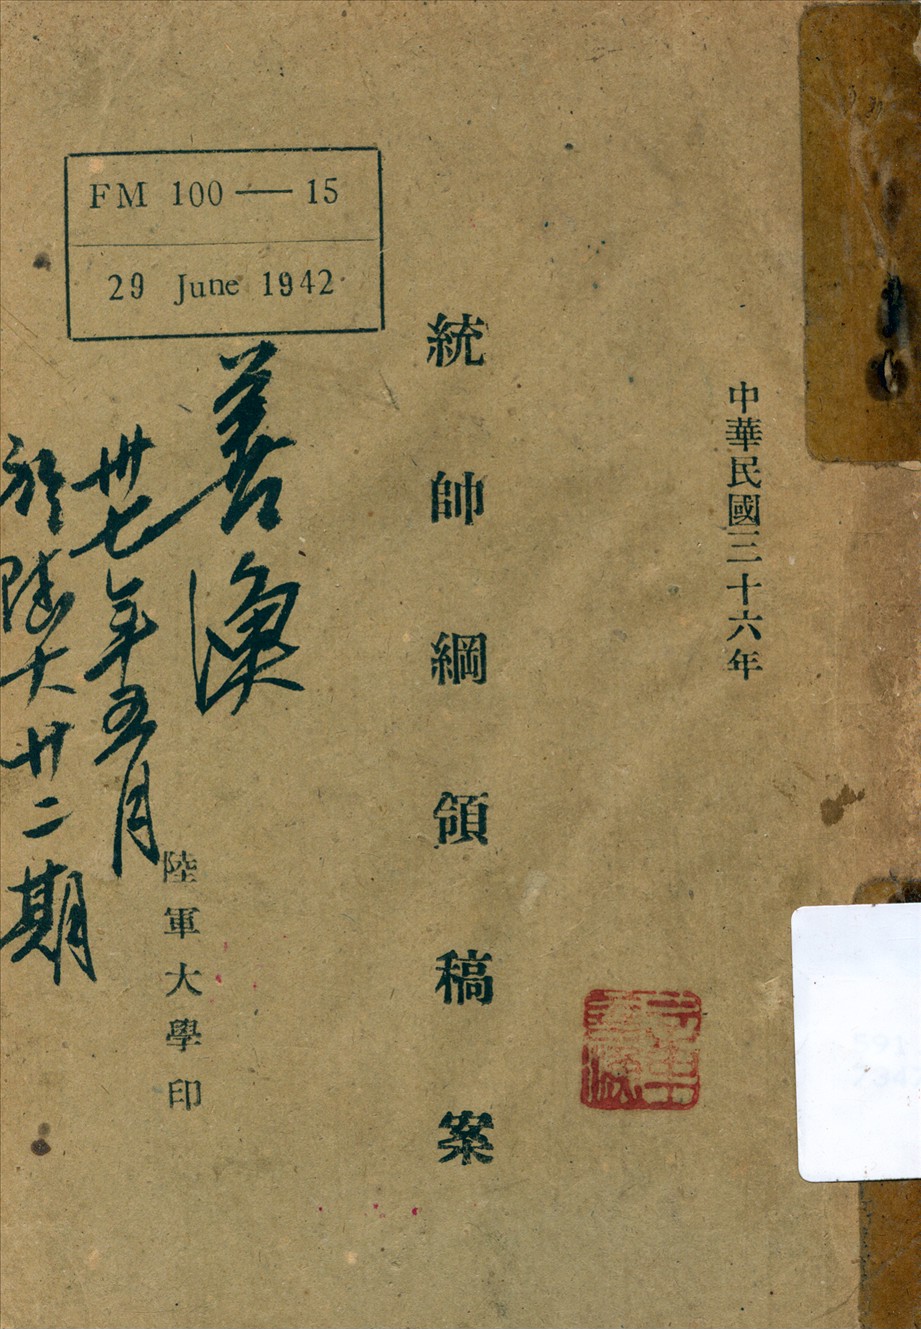 中華民國三十六年
統帥綱領稿案
FM 100 — 15
29 June 1942
善渙
卅七年五月
於陸大廿二期
陸軍大學印